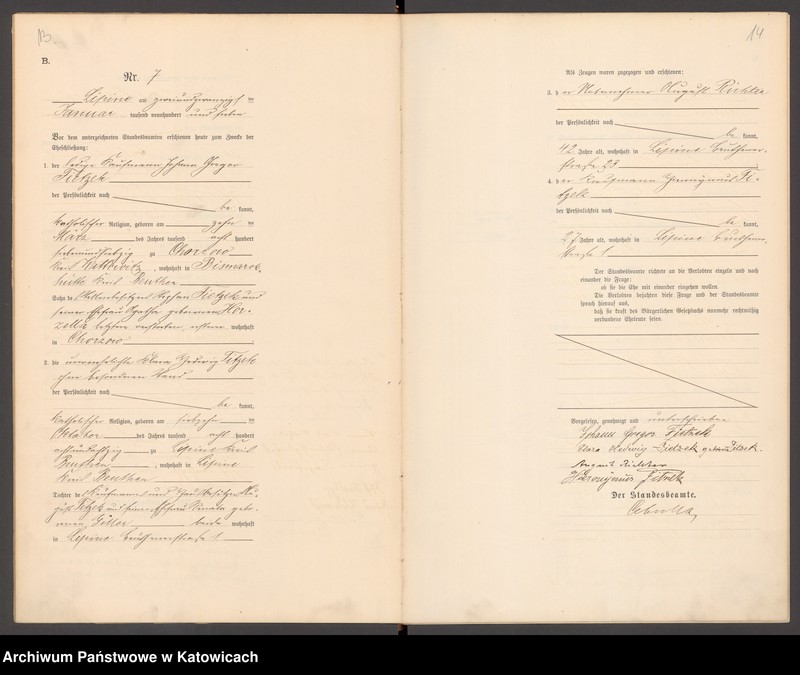 13.
B.
Nr. 7
Lipine am zweiundzwanzigsten
Januar tausend neunhundert und sieben
Vor dem unterzeichneten Standesbeamten erschienen heute zum Zwecke der
Eheschließung:
1. der ledige Kaufmann Johann Gregor
Tietzek
der Persönlichkeit nach
be kannt,
katholischer Religion, geboren am zehnten
März des Jahres tausend acht hundert
siebenundsiebzig zu Chorzow
Kreis Kattowitz, wohnhaft in Bismarck-
hütte Kreis Beuthen
Sohn des Stellenbesitzers Tietzek und
seiner Ehefrau Agathe geborenen Hor-
zella letztere verstorben, ersterer wohnhaft
in Chorzow
2. die unverehelichte Klara Hedwig Titzek
ohne besonderen Stand
der Persönlichkeit nach
be kannt,
katholischer Religion, geboren am siebzehnten
Oktober des Jahres tausend acht hundert
achtundachtzig zu Lipine Kreis
Beuthen, wohnhaft in Lipine
Kreis Beuthen
Tochter des Kaufmanns und Hausbesitzers Au-
gust Titzek und seiner Ehefrau Renata gebo-
renen Göller beide wohnhaft
in Lipine Beuthenerstraße 1
14
Als Zeugen waren zugezogen und erschienen:
3. der August Richter
der Persönlichkeit nach
be kannt,
42 Jahre alt, wohnhaft in Lipine Beuthener-
straße 23
4. der Kaufmann Hieronymus Ti-
tzek
der Persönlichkeit nach
be kannt,
27 Jahre alt, wohnhaft in Lipine Beuthener-
straße 1
Der Standesbeamte richtete an die Verlobten einzeln und nach
einander die Frage:
ob sie die Ehe mit einander eingehen wollen.
Die Verlobten bejahten diese Frage und der Standesbeamte
sprach hierauf aus,
daß sie kraft des Bürgerlichen Gesetzbuchs nunmehr rechtmäßig
verbundene Eheleute seien.
Vorgelesen, genehmigt und unterschrieben
Johann Gregor Tietzek
Clara Hedwig Tietzek geborene Titzek.
August Richter
Hieronymus Titzek
Der Standesbeamte.
Cebulla
Archiwum Państwowe w Katowicach